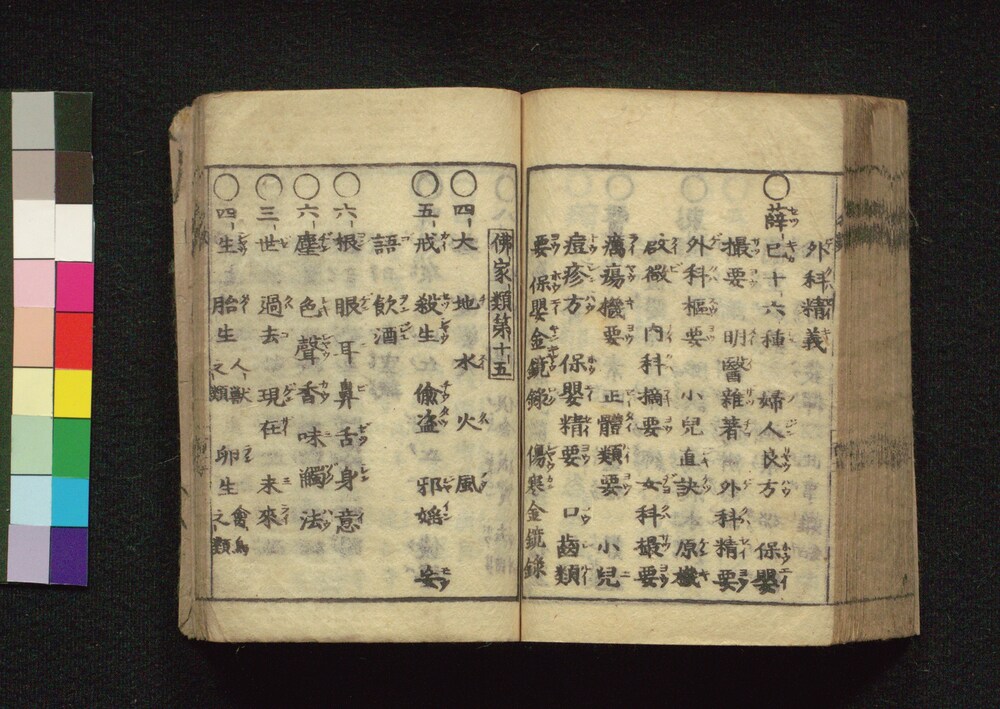 外科精義
○薛己十六種 婦人良方 保嬰
撮要 明醫雜著 外科精要
外科樞要 小兒直訣 原機
啟微 內科摘要 女科撮要
癘瘍機要 正體類要 小兒
痘疹方 保嬰精要 口齒類
要 保嬰金鏡錄 傷寒金鏡錄
佛家類第十五
○四大 地 水 火 風
○五戒 殺生 偸盗 邪婬 妄
語 飲酒
○六根 眼 耳 鼻 舌 身 意
○六塵 色 聲 香 味 觸 法
○三世 過去 現在 未來
○四生 胎生 人獸之類 卵生 禽鳥之類